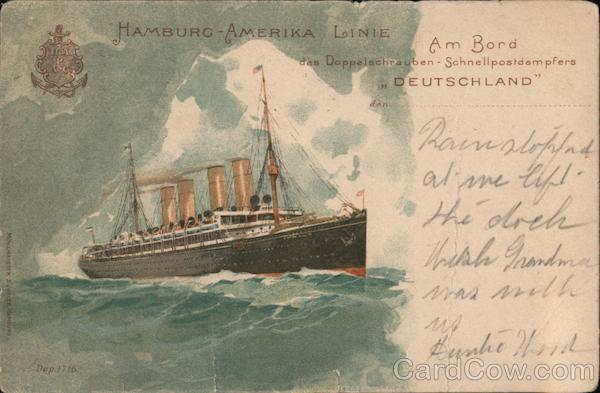 HAMBURG-AMERIKA LINIE
Am Bord
das Doppelschrauben-Schnellpostdampfers
„DEUTSCHLAND"
den
Rain stopped
as we left
the dock
Wish Grandma
was with
us
Auntie Wood
Dep. 1716.
CardCow.com